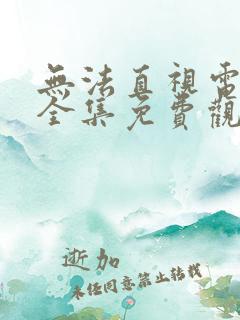 無法直視電
全集免費觀
逝加
未经同意禁止转载